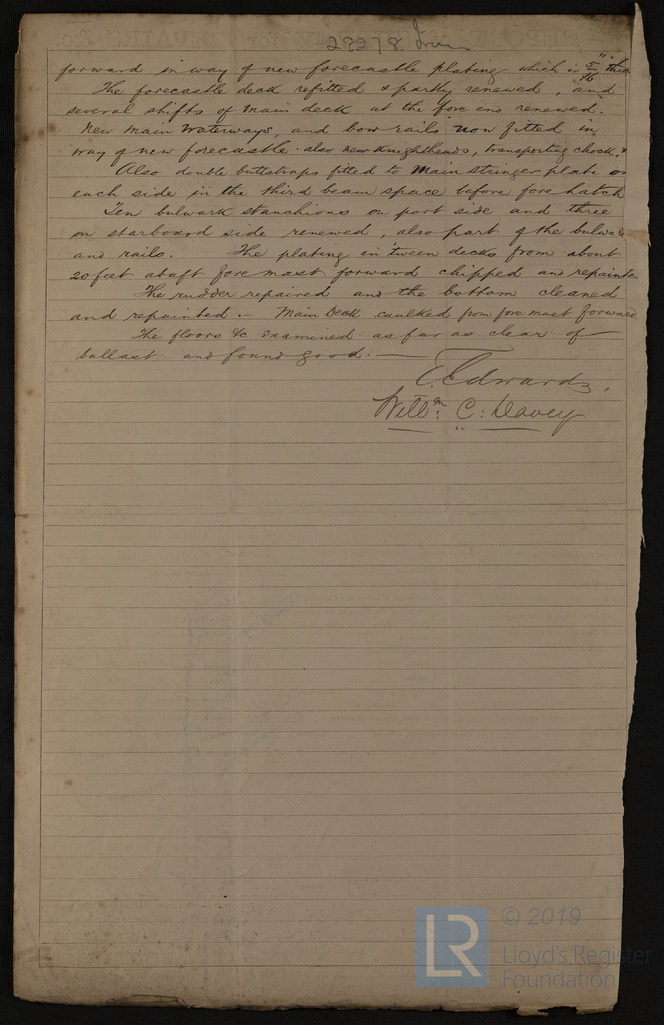 28278 Iron
forward in way of new forecastle plating which is 5/16" thic
The forecastle deck refitted & partly renewed, and
several shifts of main deck at the fore end renewed.
New main waterways, and bow rails now fitted in
way of new forecastle. also new Knightheads, transporting chock, &
Also double buttstraps fitted to main stringer plate on
each side in the third beam space before fore hatch
Ten bulwark stanchions on port side and three
on starboard side renewed, also part of the bulwar
and rails. The plating in 'tween decks from about
20 feet abaft fore mast forward chipped and repainte
The rudder repaired and the bottom cleaned
and repainted. - Main Deck caulked from fore mast forward
The floors &c examined as far as clear of
ballast and found good. -
E. Edwards,
Willm. C: Davey
LR
© 2019
Lloyd's Register
Foundation